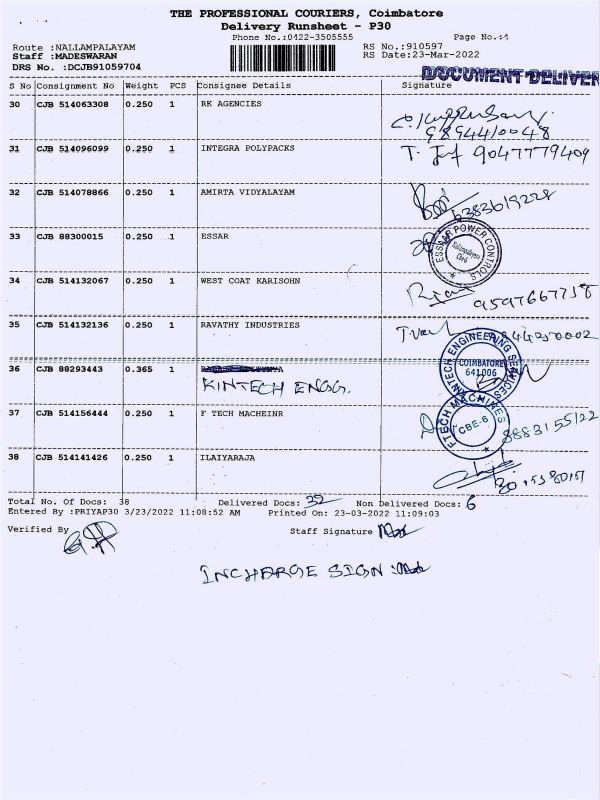 THE PROFESSIONAL COURIERS, Coimbatore
Delivery Runsheet - P30
Phone No.:0422-3505555 Page No.:4
Route :NALLAMPALAYAM RS No.:910597
Staff :MADESWARAN RS Date:23-Mar-2022
DRS No. :DCJB91059704
DOCUMENT DELIVER
S No Consignment No Weight PCS Consignee Details Signature
30 CJB 514063308 0.250 1 RK AGENCIES
9894410048
31 CJB 514096099 0.250 1 INTEGRA POLYPACKS T. 9047779409
32 CJB 514078866 0.250 1 AMIRTA VIDYALAYAM
6383619228
33 CJB 88300015 0.250 1 ESSAR
ESSAAR POWER CONTROLS
34 CJB 514132067 0.250 1 WEST COAT KARISOHN
9597667718
35 CJB 514132136 0.250 1 RAVATHY INDUSTRIES
36 CJB 88293443 0.365 1
KINTECH ENGG.
KINTECH ENGINEERING SERVICES
COIMBATORE
641006
37 CJB 514156444 0.250 1 F TECH MACHEINR
FTECH MACHINES
CBE-6
8883155122
38 CJB 514141426 0.250 1 ILAIYARAJA
Total No. Of Docs: 38 Delivered Docs: 32 Non Delivered Docs: 6
Entered By :PRIYAP30 3/23/2022 11:08:52 AM Printed On: 23-03-2022 11:09:03
Verified By Staff Signature
INCHARGE SIGN :